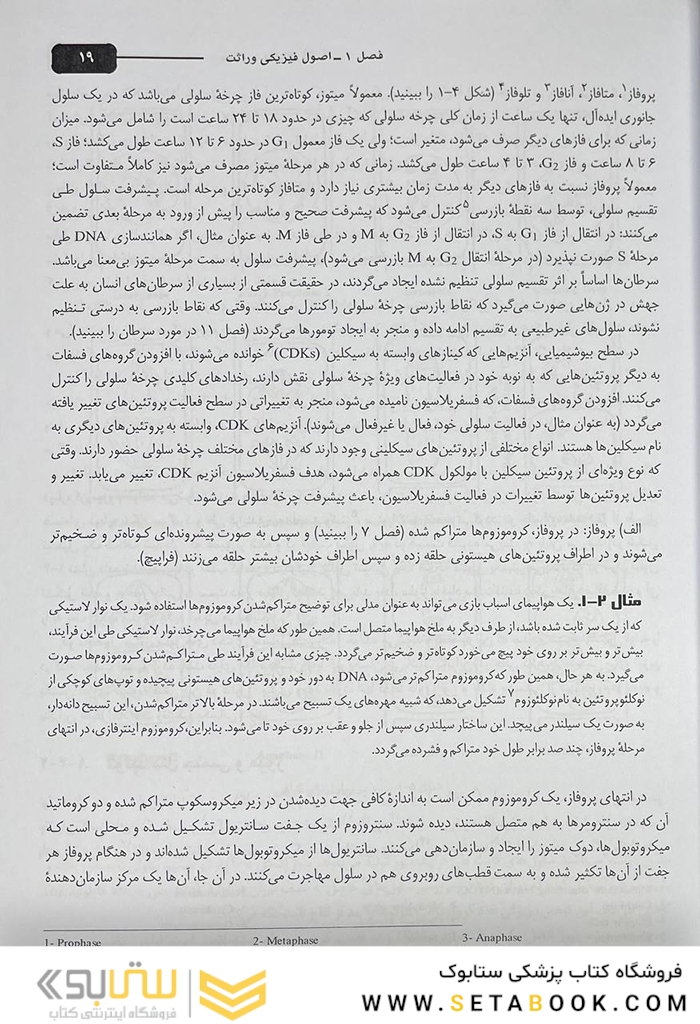 فصل ۱ ــ اصول فیزیکی وراثت
۱۹
پروفاز۱، متافاز۲، آنافاز۳ و تلوفاز۴ (شکل ۴-۱ را ببینید). معمولاً میتوز، کوتاه‌ترین فاز چرخهٔ سلولی می‌باشد که در یک سلول
جانوری ایده‌آل، تنها یک ساعت از زمان کلی چرخه سلولی که چیزی در حدود ۱۸ تا ۲۴ ساعت است را شامل می‌شود. میزان
زمانی که برای فازهای دیگر صرف می‌شود، متغیر است؛ ولی یک فاز معمول G1 در حدود ۶ تا ۱۲ ساعت طول می‌کشد؛ فاز S،
۶ تا ۸ ساعت و فاز G2، ۳ تا ۴ ساعت طول می‌کشد. زمانی که در هر مرحلهٔ میتوز مصرف می‌شود نیز کاملاً متفاوت است؛
معمولاً پروفاز نسبت به فازهای دیگر به مدت زمان بیشتری نیاز دارد و متافاز کوتاه‌ترین مرحله است. پیشرفت سلول طی
تقسیم سلولی، توسط سه نقطهٔ بازرسی۵ کنترل می‌شود که پیشرفت صحیح و مناسب را پیش از ورود به مرحلهٔ بعدی تضمین
می‌کنند: در انتقال از فاز G1 به S، در انتقال از فاز G2 به M و در طی فاز M. به عنوان مثال، اگر همانندسازی DNA طی
مرحلهٔ S صورت نپذیرد (در مرحلهٔ انتقال G2 به M بازرسی می‌شود)، پیشرفت سلول به سمت مرحلهٔ میتوز بی‌معنا می‌باشد.
سرطان‌ها اساساً بر اثر تقسیم سلولی تنظیم نشده ایجاد می‌گردند، در حقیقت قسمتی از بسیاری از سرطان‌های انسان به علت
جهش در ژن‌هایی صورت می‌گیرد که نقاط بازرسی چرخهٔ سلولی را کنترل می‌کنند. وقتی که نقاط بازرسی به درستی تنظیم
نشوند، سلول‌های غیرطبیعی به تقسیم ادامه داده و منجر به ایجاد تومورها می‌گردند (فصل ۱۱ در مورد سرطان را ببینید).
در سطح بیوشیمیایی، آنزیم‌هایی که کینازهای وابسته به سیکلین (CDKs)۶ خوانده می‌شوند، با افزودن گروه‌های فسفات
به دیگر پروتئین‌هایی که به نوبه خود در فعالیت‌های ویژهٔ چرخهٔ سلولی نقش دارند، رخدادهای کلیدی چرخهٔ سلولی را کنترل
می‌کنند. افزودن گروه‌های فسفات، که فسفریلاسیون نامیده می‌شود، منجر به تغییراتی در سطح فعالیت پروتئین‌های تغییر یافته
می‌گردد (به عنوان مثال، در فعالیت سلولی خود، فعال یا غیرفعال می‌شوند). آنزیم‌های CDK، وابسته به پروتئین‌های دیگری به
نام سیکلین‌ها هستند. انواع مختلفی از پروتئین‌های سیکلینی وجود دارند که در فازهای مختلف چرخهٔ سلولی حضور دارند. وقتی
که نوع ویژه‌ای از پروتئین سیکلین با مولکول CDK همراه می‌شود، هدف فسفریلاسیون آنزیم CDK، تغییر می‌یابد. تغییر و
تعدیل پروتئین‌ها توسط تغییرات در فعالیت فسفریلاسیون، باعث پیشرفت چرخهٔ سلولی می‌شود.
الف) پروفاز: در پروفاز، کروموزوم‌ها متراکم شده (فصل ۷ را ببینید) و سپس به صورت پیشرونده‌ای کوتاه‌تر و ضخیم‌تر
می‌شوند و در اطراف پروتئین‌های هیستونی حلقه زده و سپس اطراف خودشان بیشتر حلقه می‌زنند (فراپیچ).
مثال ۲-۱. یک هواپیمای اسباب بازی می‌تواند به عنوان مدلی برای توضیح متراکم‌شدن کروموزوم‌ها استفاده شود. یک نوار لاستیکی
که از یک سر ثابت شده باشد، از طرف دیگر به ملخ هواپیما متصل است. همین طور که ملخ هواپیما می‌چرخد، نوار لاستیکی طی این فرآیند،
بیش‌تر و بیش‌تر بر روی خود پیچ می‌خورد کوتاه‌تر و ضخیم‌تر می‌گردد. چیزی مشابه این فرآیند طی متراکم‌شدن کروموزوم‌ها صورت
می‌گیرد. به هر حال، همین طور که کروموزوم متراکم‌تر می‌شود، DNA به دور خود و پروتئین‌های هیستونی پیچیده و توپ‌های کوچکی از
نوکلئوپروتئین به نام نوکلئوزوم۷ تشکیل می‌دهد، که شبیه مهره‌های یک تسبیح می‌باشند. در مرحلهٔ بالاتر متراکم‌شدن، این تسبیح دانه‌دار،
به صورت یک سیلندر می‌پیچد. این ساختار سیلندری سپس از جلو و عقب بر روی خود تا می‌شود. بنابراین، کروموزوم اینترفازی، در انتهای
مرحلهٔ پروفاز، چند صد برابر طول خود متراکم و فشرده می‌گردد.
در انتهای پروفاز، یک کروموزوم ممکن است به اندازهٔ کافی جهت دیده‌شدن در زیر میکروسکوپ متراکم شده و دو کروماتید
آن که در سنترومرها به هم متصل هستند، دیده شوند. سنتروزوم از یک جفت سانتریول تشکیل شده و محلی است که
میکروتوبول‌ها، دوک میتوز را ایجاد و سازمان‌دهی می‌کنند. سانتریول‌ها از میکروتوبول‌ها تشکیل شده‌اند و در هنگام پروفاز هر
جفت از آن‌ها تکثیر شده و به سمت قطب‌های روبروی هم در سلول مهاجرت می‌کنند. در آن جا، آن‌ها یک مرکز سازمان‌دهندهٔ
1- Prophase 2- Metaphase 3- Anaphase
فروشگاه کتاب پزشکی ستابوک
WWW.SETABOOK.COM
ستابوک
فروشگاه اینترنتی کتاب